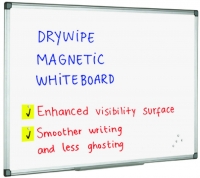 DRYWIPE
MAGNETIC
WHITEBOARD
Enhanced visibility surface
Smoother writing
and less ghosting